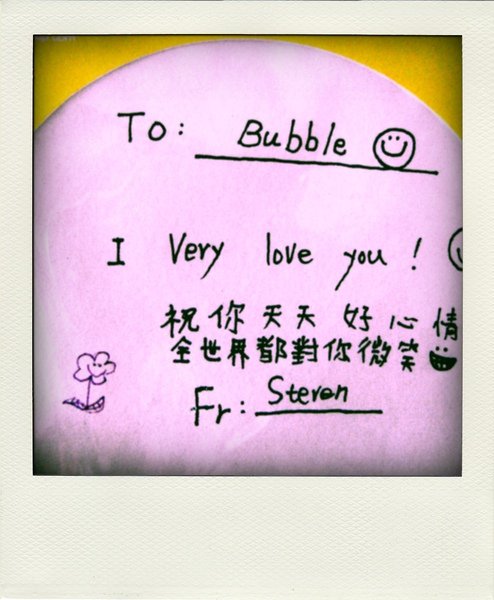 To: Bubble
I Very love you!
祝你天天好心情
全世界都對你微笑
Fr: Steven